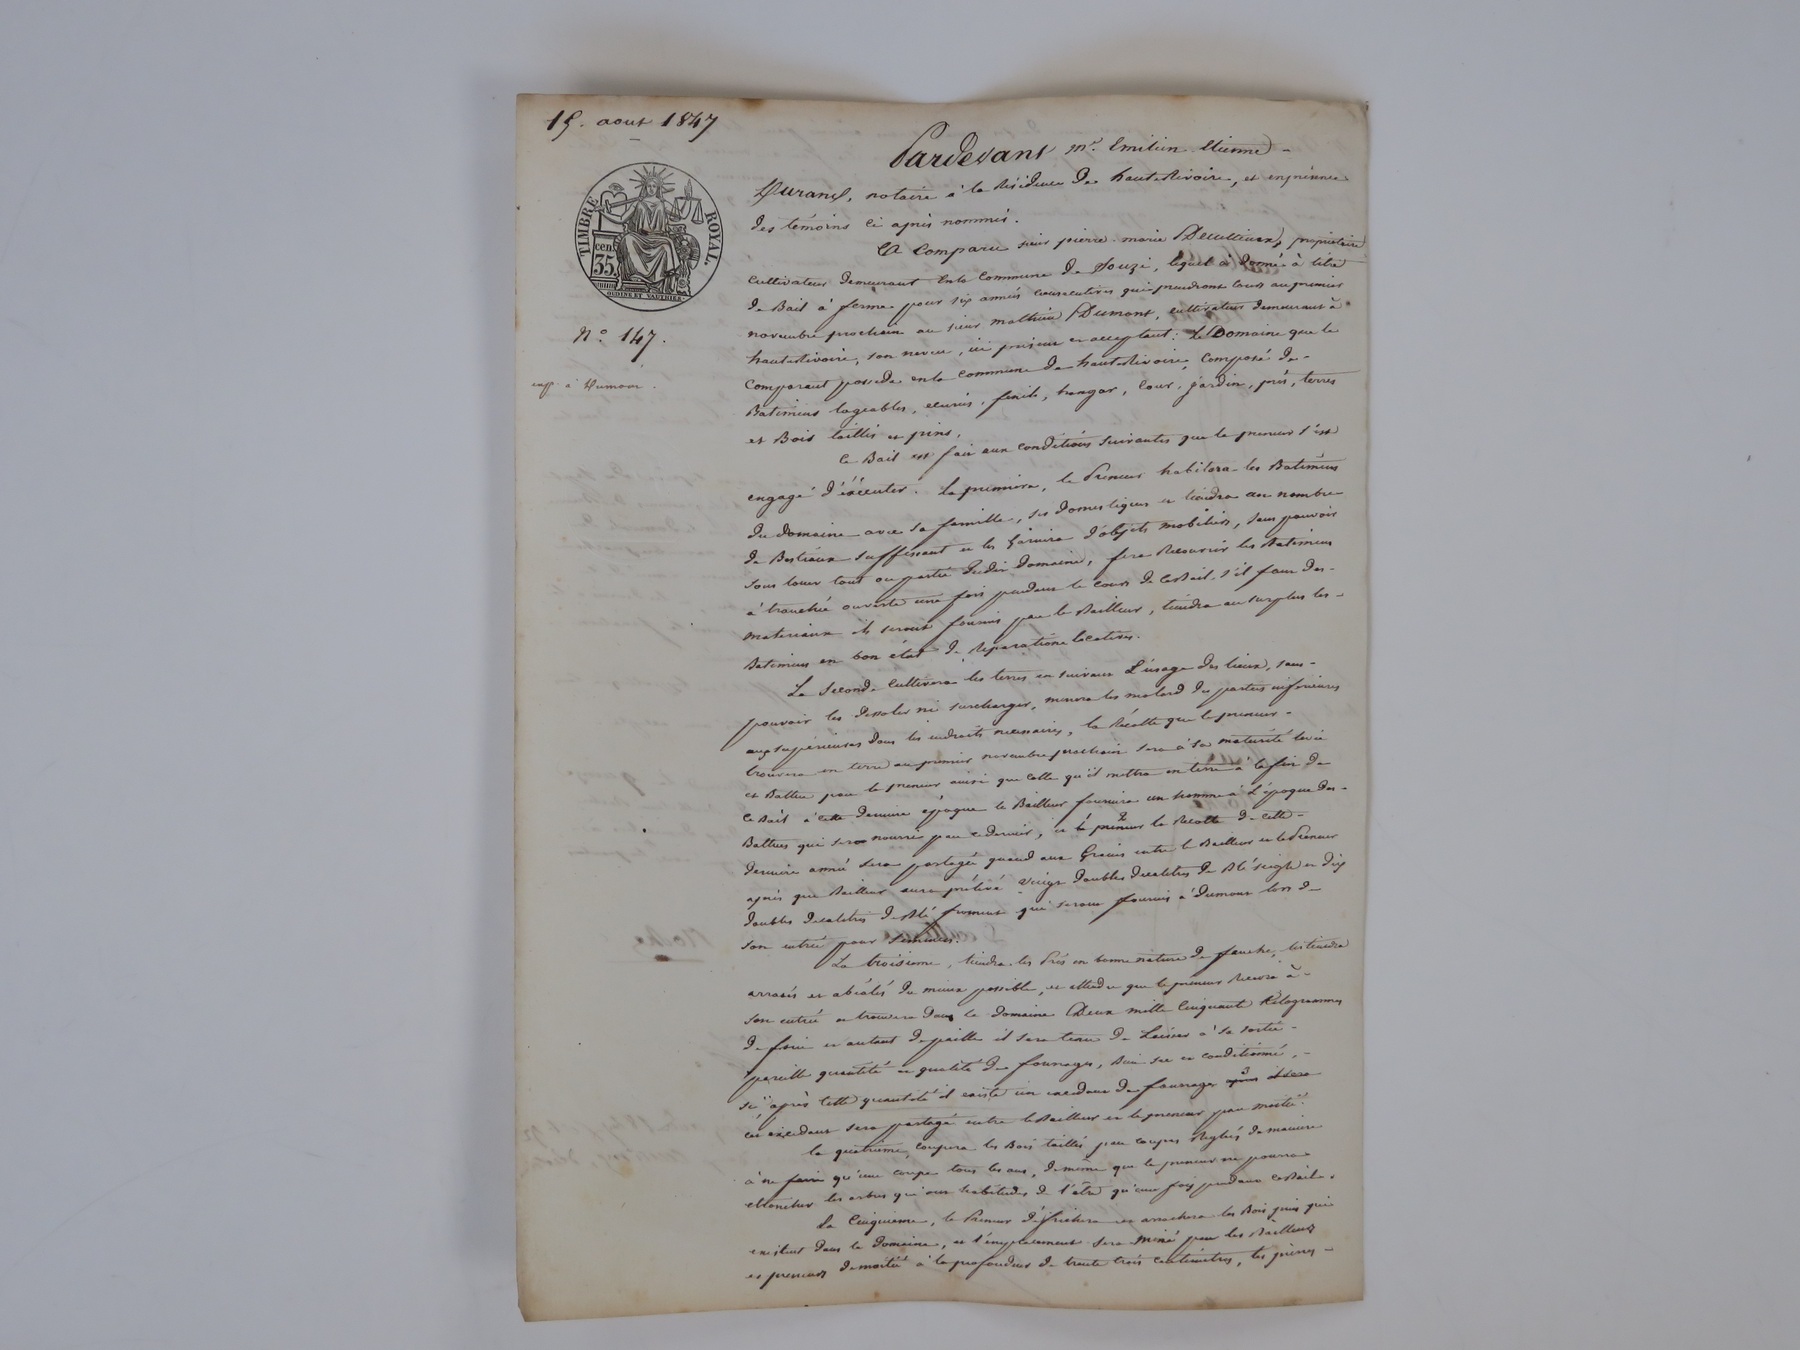 15. aout 1847
Pardevant Me. Emilien Etienne
Durand, notaire à la Résidence de hauterivoire, et en présence
des témoins ci après nommés.
TIMBRE ROYAL.
cen. 35.
OUDINE ET VAUTHIER.
N.o 147.
exp. à Dumont.
A Comparu sieur pierre marie propriétaire
cultivateur demeurant en la Commune de Souzi, lequel a donné à titre
de Bail à ferme pour six années consecutives qui prendront cours au premier
novembre prochain au sieur mathieu Dumont, cultivateur demeurant à
hauterivoire, son neveu, ici présent et acceptant : Le Domaine que le
Comparant possede en la commune de hauterivoire, composé de
Batimens logeables, ecuries, fenile, hangar, Cour, jardin, prés, terres
et Bois taillis et pins.
Ce Bail est fait aux conditions suivantes que le preneur s'est
engagé d'éxécuter. La premiere, le Preneur habitera les Batimens
du domaine avec sa famille, ses domestiques et tiendra au nombre
de Bestiaux suffissant et les garnira d'objets mobiliers, sans pouvoir
sous louer tout ou partie dudit domaine, fera Recouvrir les Batimens
à tranchée ouverte une fois pendant le cours de ce Bail, s'il faut des
materiaux ils seront fournis par le Bailleur, tiendra au surplus les
Batimens en bon état de Réparations locatives.
La Seconde cultivera les terres en suivant L'usage des lieux, sans
pouvoir les dessoler ni surcharger, menera les molard des parties inferieures
aux supérieures dans les endroits necessaires, la Récolte que le preneur
trouvera en terre au premier novembre prochain sera à sa maturité levée
et Battue par le preneur ainsi que celle qu'il mettra en terre à la fin de
ce Bail à cette derniere époque le Bailleur fournira un homme à L'époque des
Battues qui sera nourri par ce dernier, et le preneur la Récolte de cette
derniere année sera partagée quand aux Grains entre le Bailleur et le Preneur
après que Bailleur aura prélevé vingt doubles decalitres de Blé seigle et dix
doubles decalitres de Blé froment qui seront fournis à Dumont lors de
son entrée pour semences.
La troisieme, tiendra les Prés en bonne nature de fauche, les tiendra
arrosés et du mieux possible, et attendu que le preneur Recevra à
son entrée et trouvera dans le domaine Deux mille Cinquante Kilogrammes
de foin et autant de paille il sera tenu de Laisser à sa sortie
pareille quantité et qualité de fourrages, bien sec et conditionné,
si après cette quantité il existe un excedent de fourrage
cet éxcedent sera partagé entre le Bailleur et le preneur par moitié.
la quatrieme, coupera les Bois taillis par coupes Réglées de maniere
à ne faire qu'une coupe tous les ans, de même que le preneur ne pourra
ebrancher les arbres qui ont habitudes de l'être qu'une fois pendant ce Bail.
La Cinquieme, le Preneur défrichera et arrachera les Bois pins qui
existent dans le Domaine, et l'emplacement sera miné par les Bailleur
et preneur de moitié à la profondeur de trente trois centimetres, les pierres